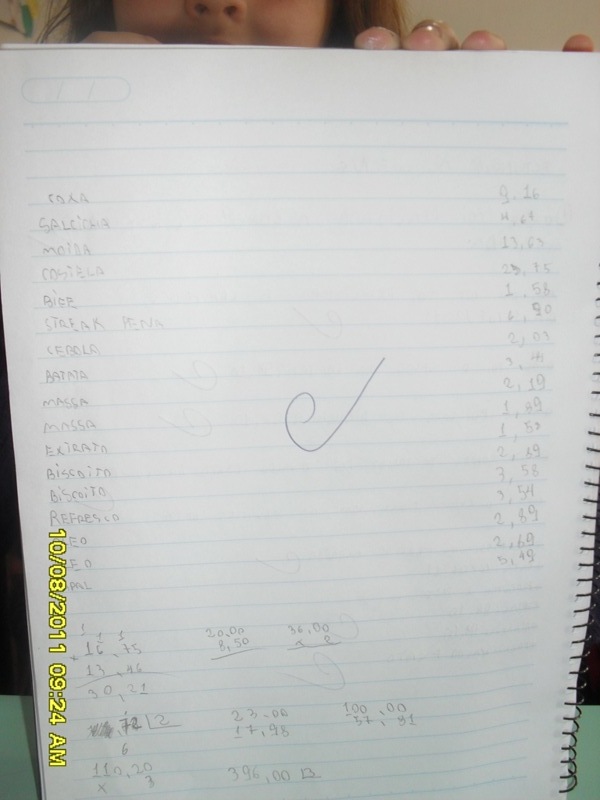 COXA 9,16
SALCICHA 4,64
MOIDA 13,63
COSTELA 23,75
BIFE 1,58
STREAK PENA 6,90
CEBOLA 2,03
BATATA
MASSA 2,19
MASSA 1,99
EXTRATO 1,50
BISCOITO 2,39
BISCOITO 3,58
REFRESCO 3,54
EO 2,89
EO 2,69
5,49
16,75 20,00 36,00
13,46 8,50 x 2
30,21
72 2 23,00 100,00
6 17,98 37,81
110,20 396,00
x 3
10/08/2011 09:24 AM